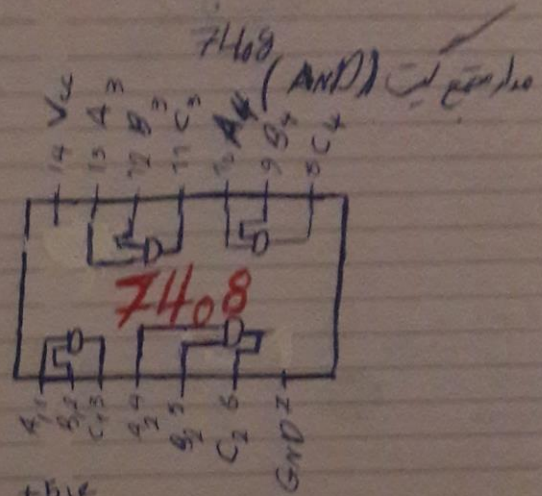 7408
مدار مجتمع گیت (AND)
14 Vcc
13 A3
12 B3
11 C3
10 A4
9 B4
8 C4
7408
A1 1
B1 2
C1 3
A2 4
B2 5
C2 6
GND 7